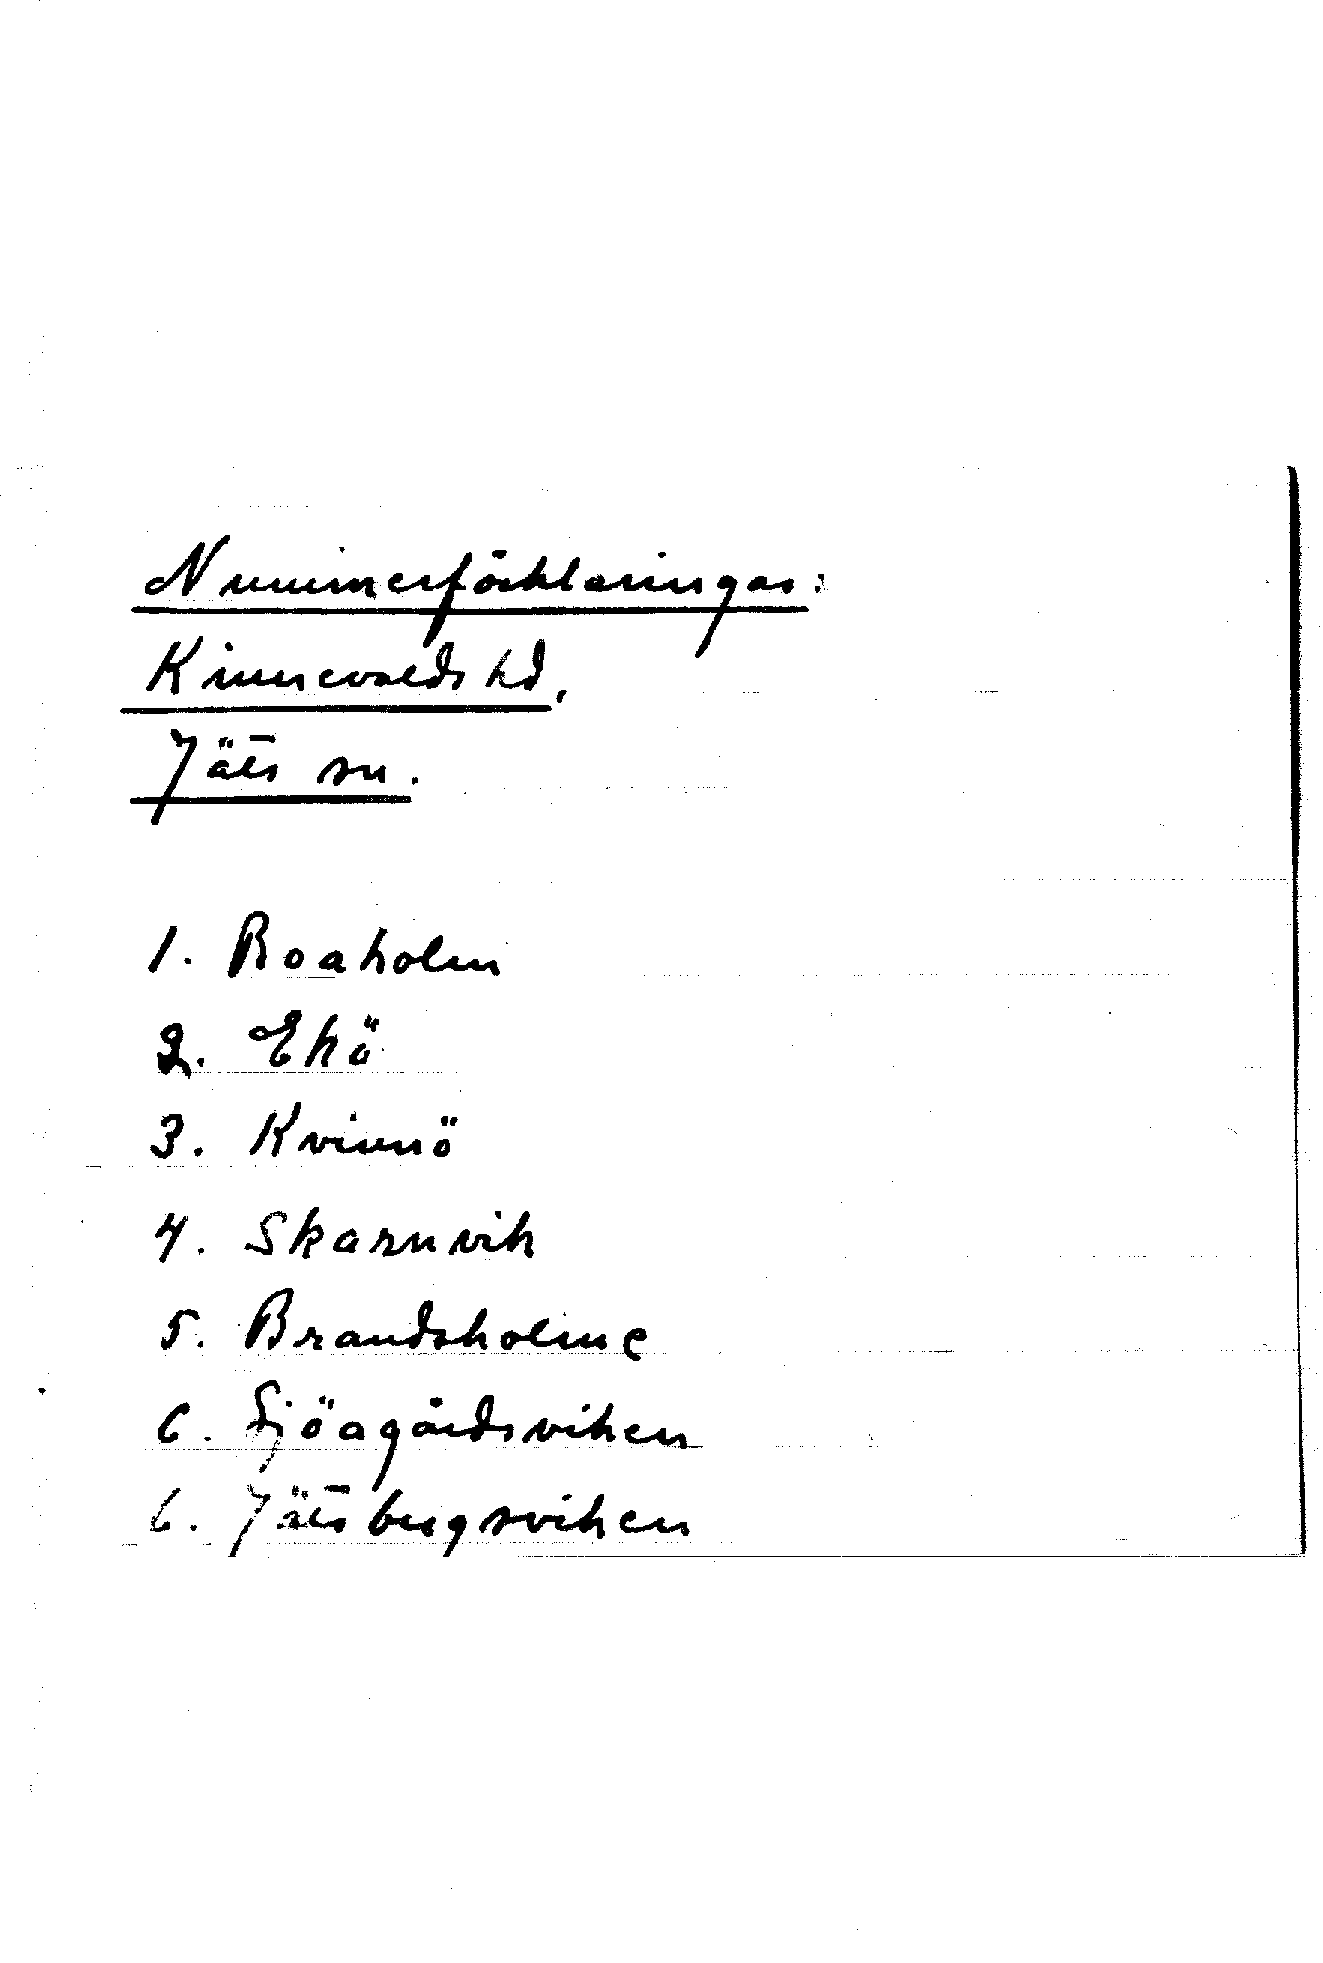 Nummerförklaringar:
Kinnevalds hd,
Jäts sn.
1. Boaholm
2. Ekö
3. Kvinnö
4. Skarnvik
5. Brandsholme
6. Sjöagårdsviken
6. Jätsbergsviken